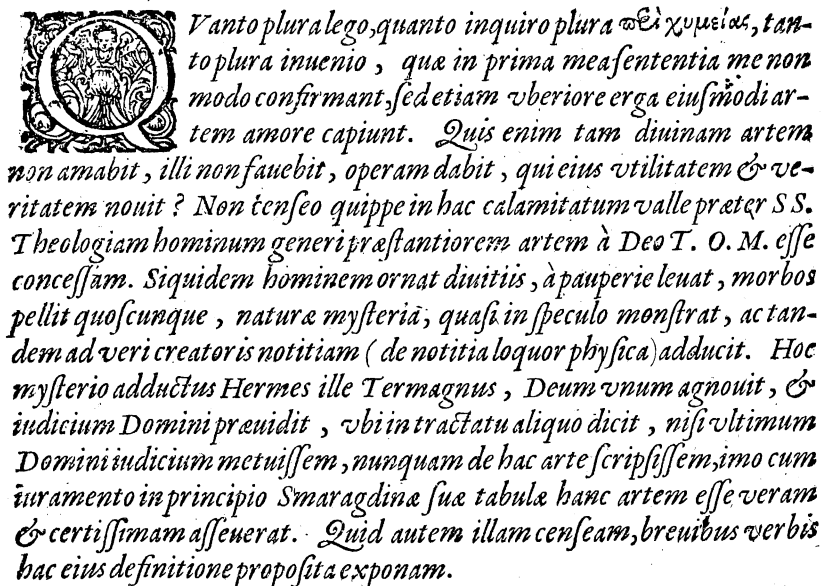 QVanto plura lego, quanto inquiro plura πεὶ χυμείας, tan-
to plura inuenio, quæ in prima mea ſententia me non
modo confirmant, ſed etiam vberiore erga eiuſmõdi ar-
tem amore capiunt. Quis enim tam diuinam artem
non amabit, illi non fauebit, operam dabit, qui eius vtilitatem & ve-
ritatem nouit? Non cenſeo quippe in hac calamitatum valle præter SS.
Theologiam hominum generi præſtantiorem artem à Deo T. O. M. eſſe
conceſſam. Siquidem hominem ornat diuitiis, à pauperie leuat, morbos
pellit quoſcunque, naturæ myſteria, quaſi in ſpeculo monſtrat, ac tan-
dem ad veri creatoris notitiam (de notitia loquor phyſica) adducit. Hoc
myſterio adductus Hermes ille Termagnus, Deum vnum agnouit, &
iudicium Domini præuidit, vbi in tractatu aliquo dicit, niſi vltimum
Domini iudicium metuiſſem, nunquam de hac arte ſcripſiſſem, imo cum
iuramento in principio Smaragdinæ ſuæ tabulæ hanc artem eſſe veram
& certiſſimam aſſeuerat. Quid autem illam cenſeam, breuibus verbis
hac eius definitione propoſita exponam.